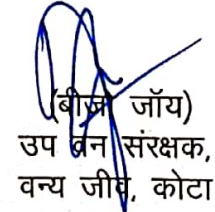 (बीजो जॉय)
उप वन संरक्षक,
वन्य जीव, कोटा